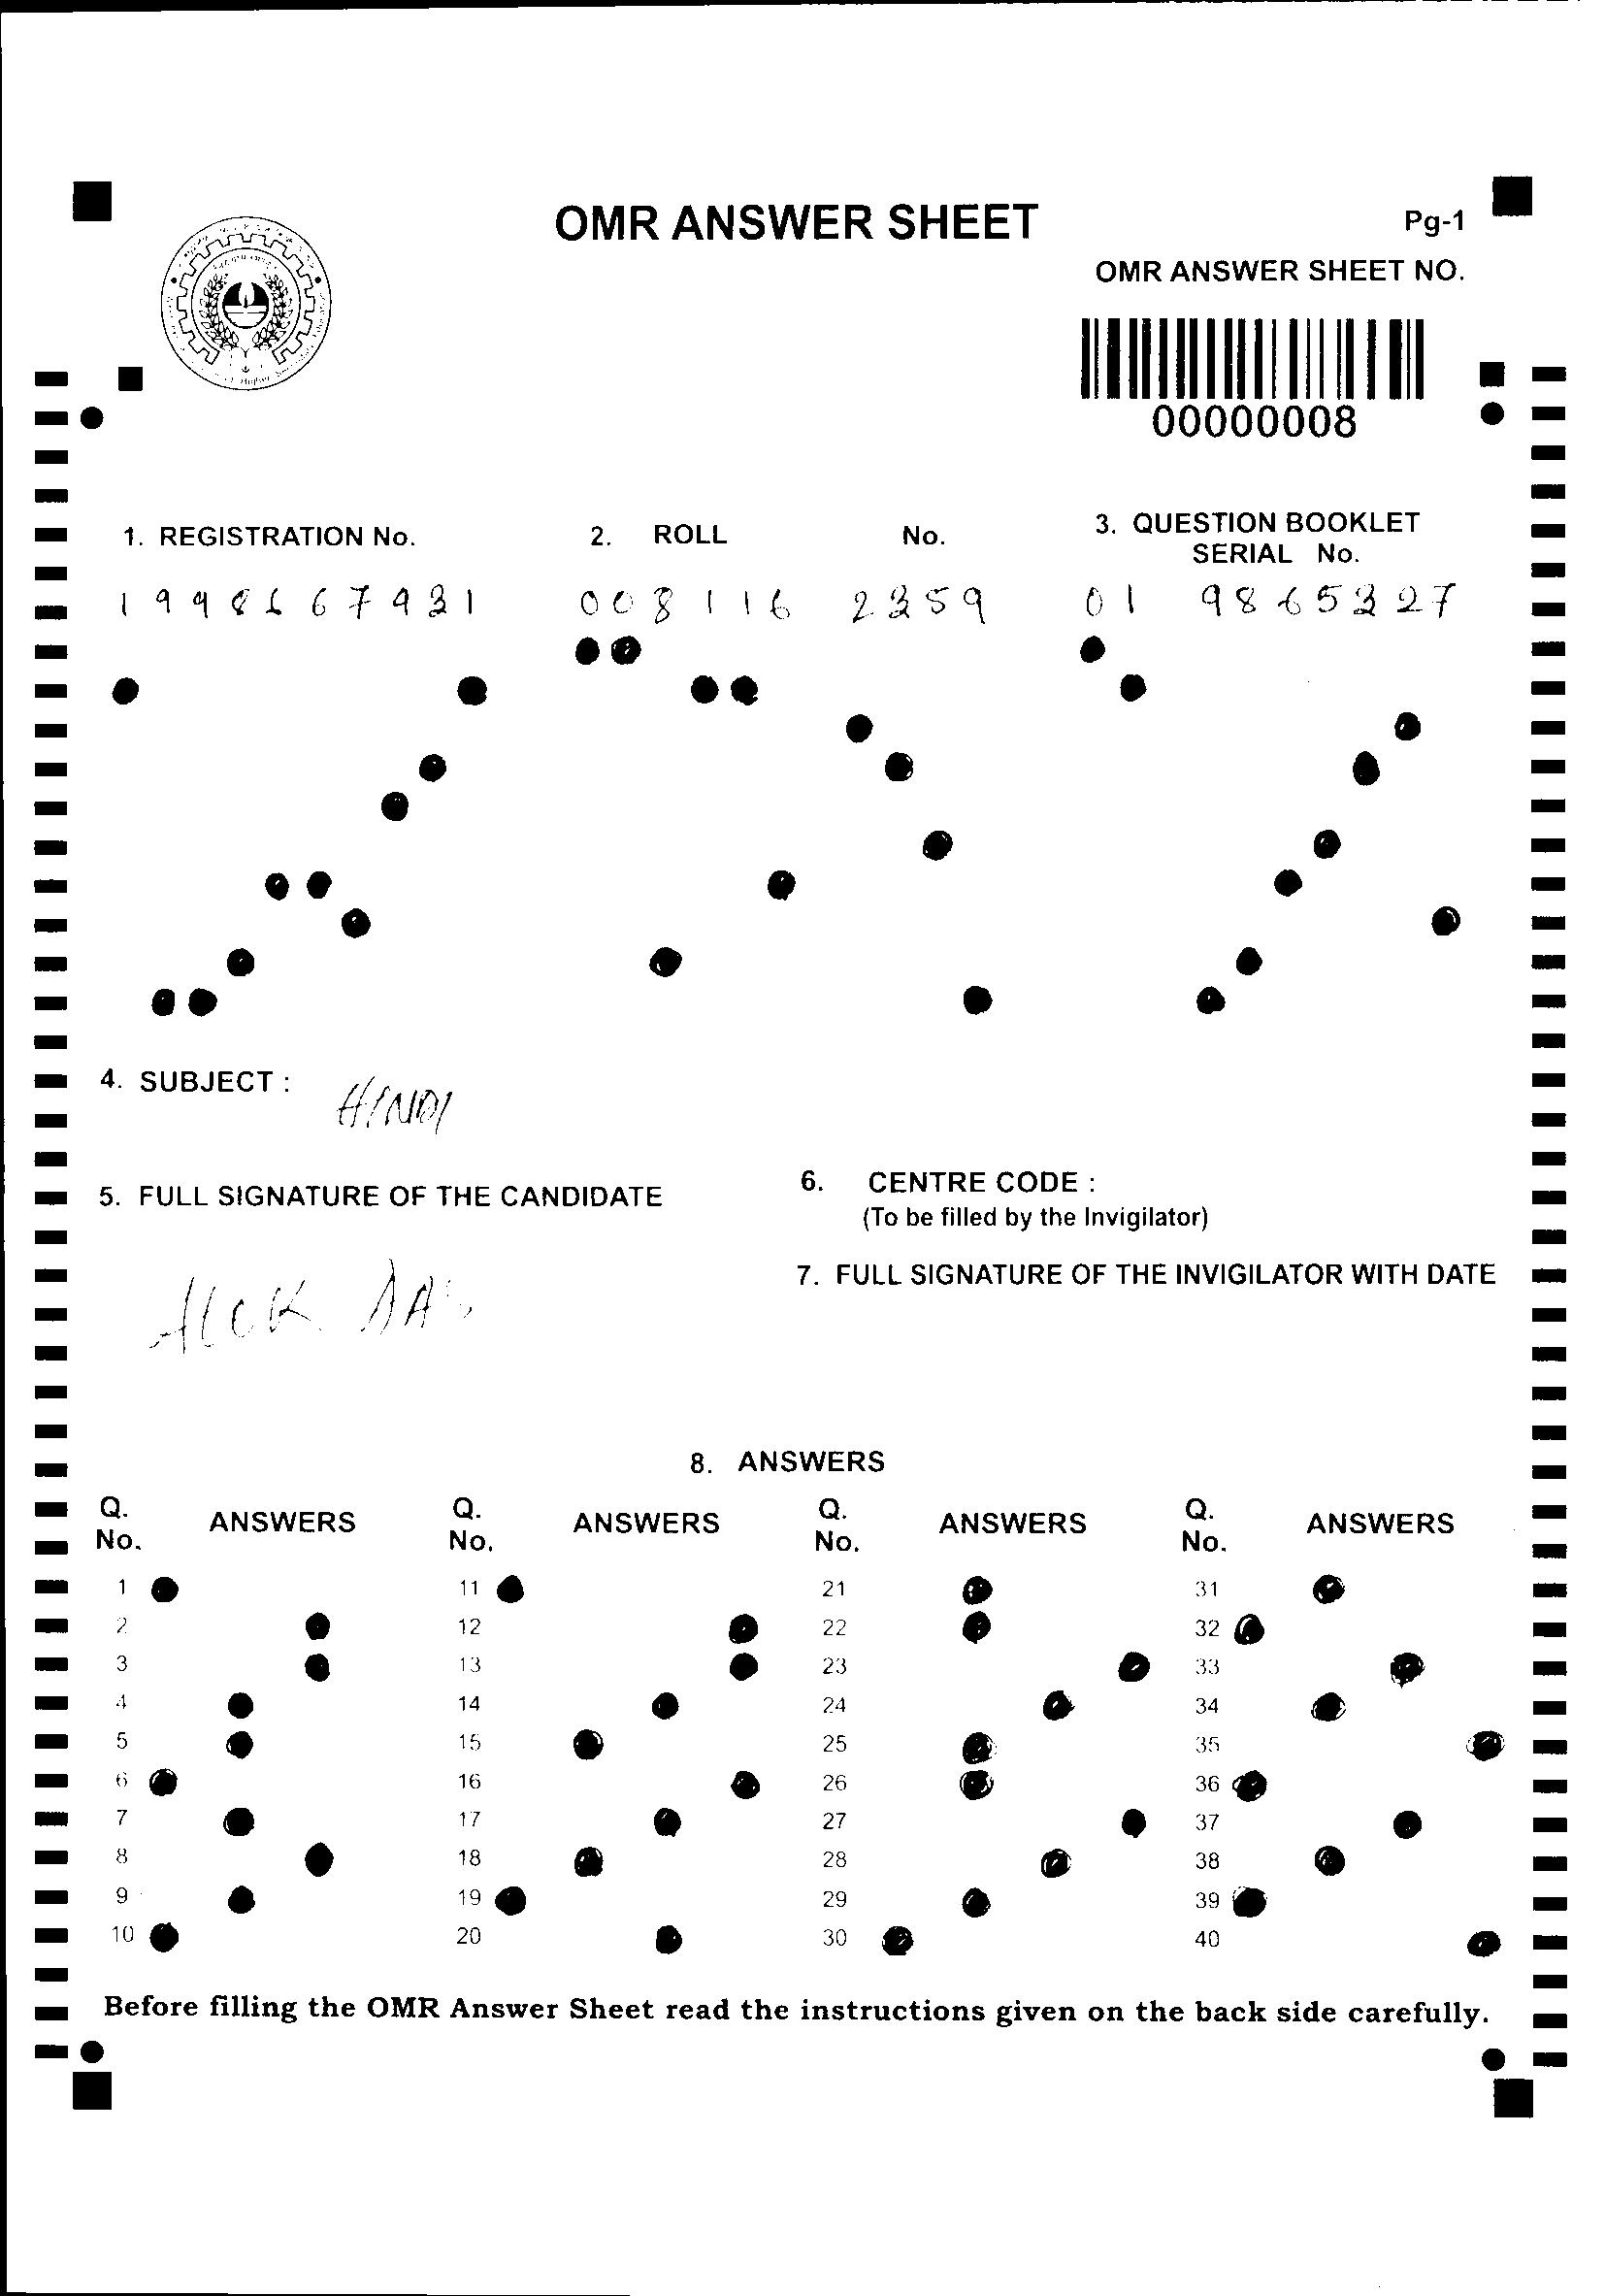 OMR ANSWER SHEET
Pg-1
OMR ANSWER SHEET NO.
00000008
1. REGISTRATION No.
2. ROLL No.
3. QUESTION BOOKLET
SERIAL No.
1998667931
008116 2359
01 9865327
4. SUBJECT :
HINDI
5. FULL SIGNATURE OF THE CANDIDATE
6. CENTRE CODE :
(To be filled by the Invigilator)
7. FULL SIGNATURE OF THE INVIGILATOR WITH DATE
ALOK DAS
8. ANSWERS
Q. No. ANSWERS Q. No. ANSWERS Q. No. ANSWERS Q. No. ANSWERS
1 11 21 31
2 12 22 32
3 13 23 33
4 14 24 34
5 15 25 35
6 16 26 36
7 17 27 37
8 18 28 38
9 19 29 39
10 20 30 40
Before filling the OMR Answer Sheet read the instructions given on the back side carefully.